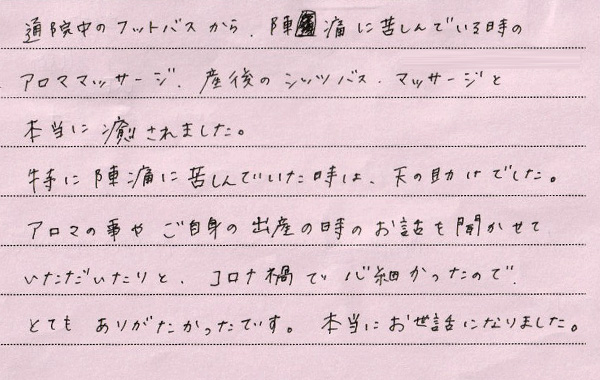 通院中のフットバスから、陣痛に苦しんでいる時の
アロママッサージ、産後のシッツバス、マッサージと
本当に癒されました。
特に陣痛に苦しんでいた時は、天の助けでした。
アロマの事やご自身の出産の時のお話を聞かせて
いただいたりと、コロナ禍で心細かったので、
とてもありがたかったです。本当にお世話になりました。